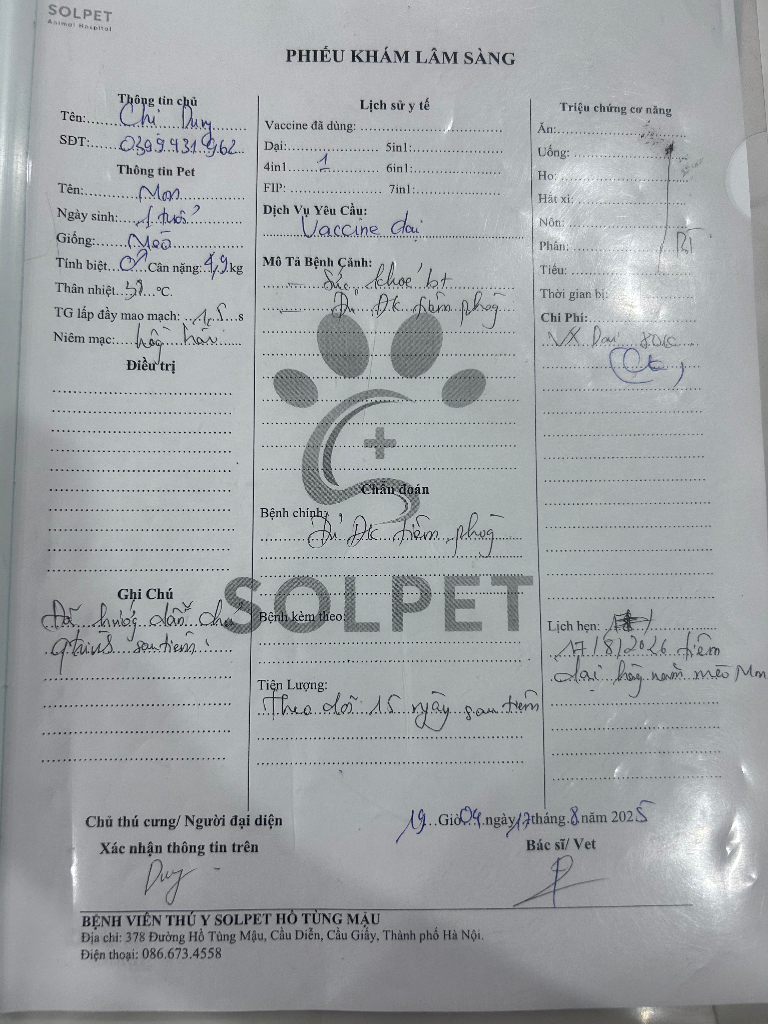 SOLPET
Animal Hospital
PHIẾU KHÁM LÂM SÀNG
Thông tin chủ
Tên: Chị Duy
SĐT: 0399.431.962
Thông tin Pet
Tên: Mon
Ngày sinh: 1 tuổi
Giống: Mèo
Tính biệt ♂ Cân nặng: 4,9 kg
Thân nhiệt 38 °C.
TG lấp đầy mao mạch: 1,5 s
Niêm mạc: hồng hào
Điều trị
Ghi Chú
Đã hướng dẫn chủ
sau tiêm
Lịch sử y tế
Vaccine đã dùng:
Dại: 5in1:
4in1 1 6in1:
FIP: 7in1:
Dịch Vụ Yêu Cầu:
Vaccine dại
Mô Tả Bệnh Cảnh:
– Sức khoẻ bt
– Đủ Đk tiêm phòng
Chẩn đoán
Bệnh chính:
Đủ Đk tiêm phòng
SOLPET
Bệnh kèm theo:
Tiên Lượng:
Theo dõi 15 ngày sau tiêm
Triệu chứng cơ năng
Ăn:
Uống:
Ho:
Hắt xì:
Nôn:
Phân: BT
Tiểu:
Thời gian bị:
Chi Phí:
VX Dại
Lịch hẹn:
17/8/2026 tiêm
dại hàng năm mèo Mon
19 Giờ 04 ngày 17 tháng 8 năm 2025
Chủ thú cưng/ Người đại diện
Xác nhận thông tin trên
Duy
Bác sĩ/ Vet
BỆNH VIỆN THÚ Y SOLPET HỒ TÙNG MẬU
Địa chỉ: 378 Đường Hồ Tùng Mậu, Cầu Diễn, Cầu Giấy, Thành phố Hà Nội.
Điện thoại: 086.673.4558